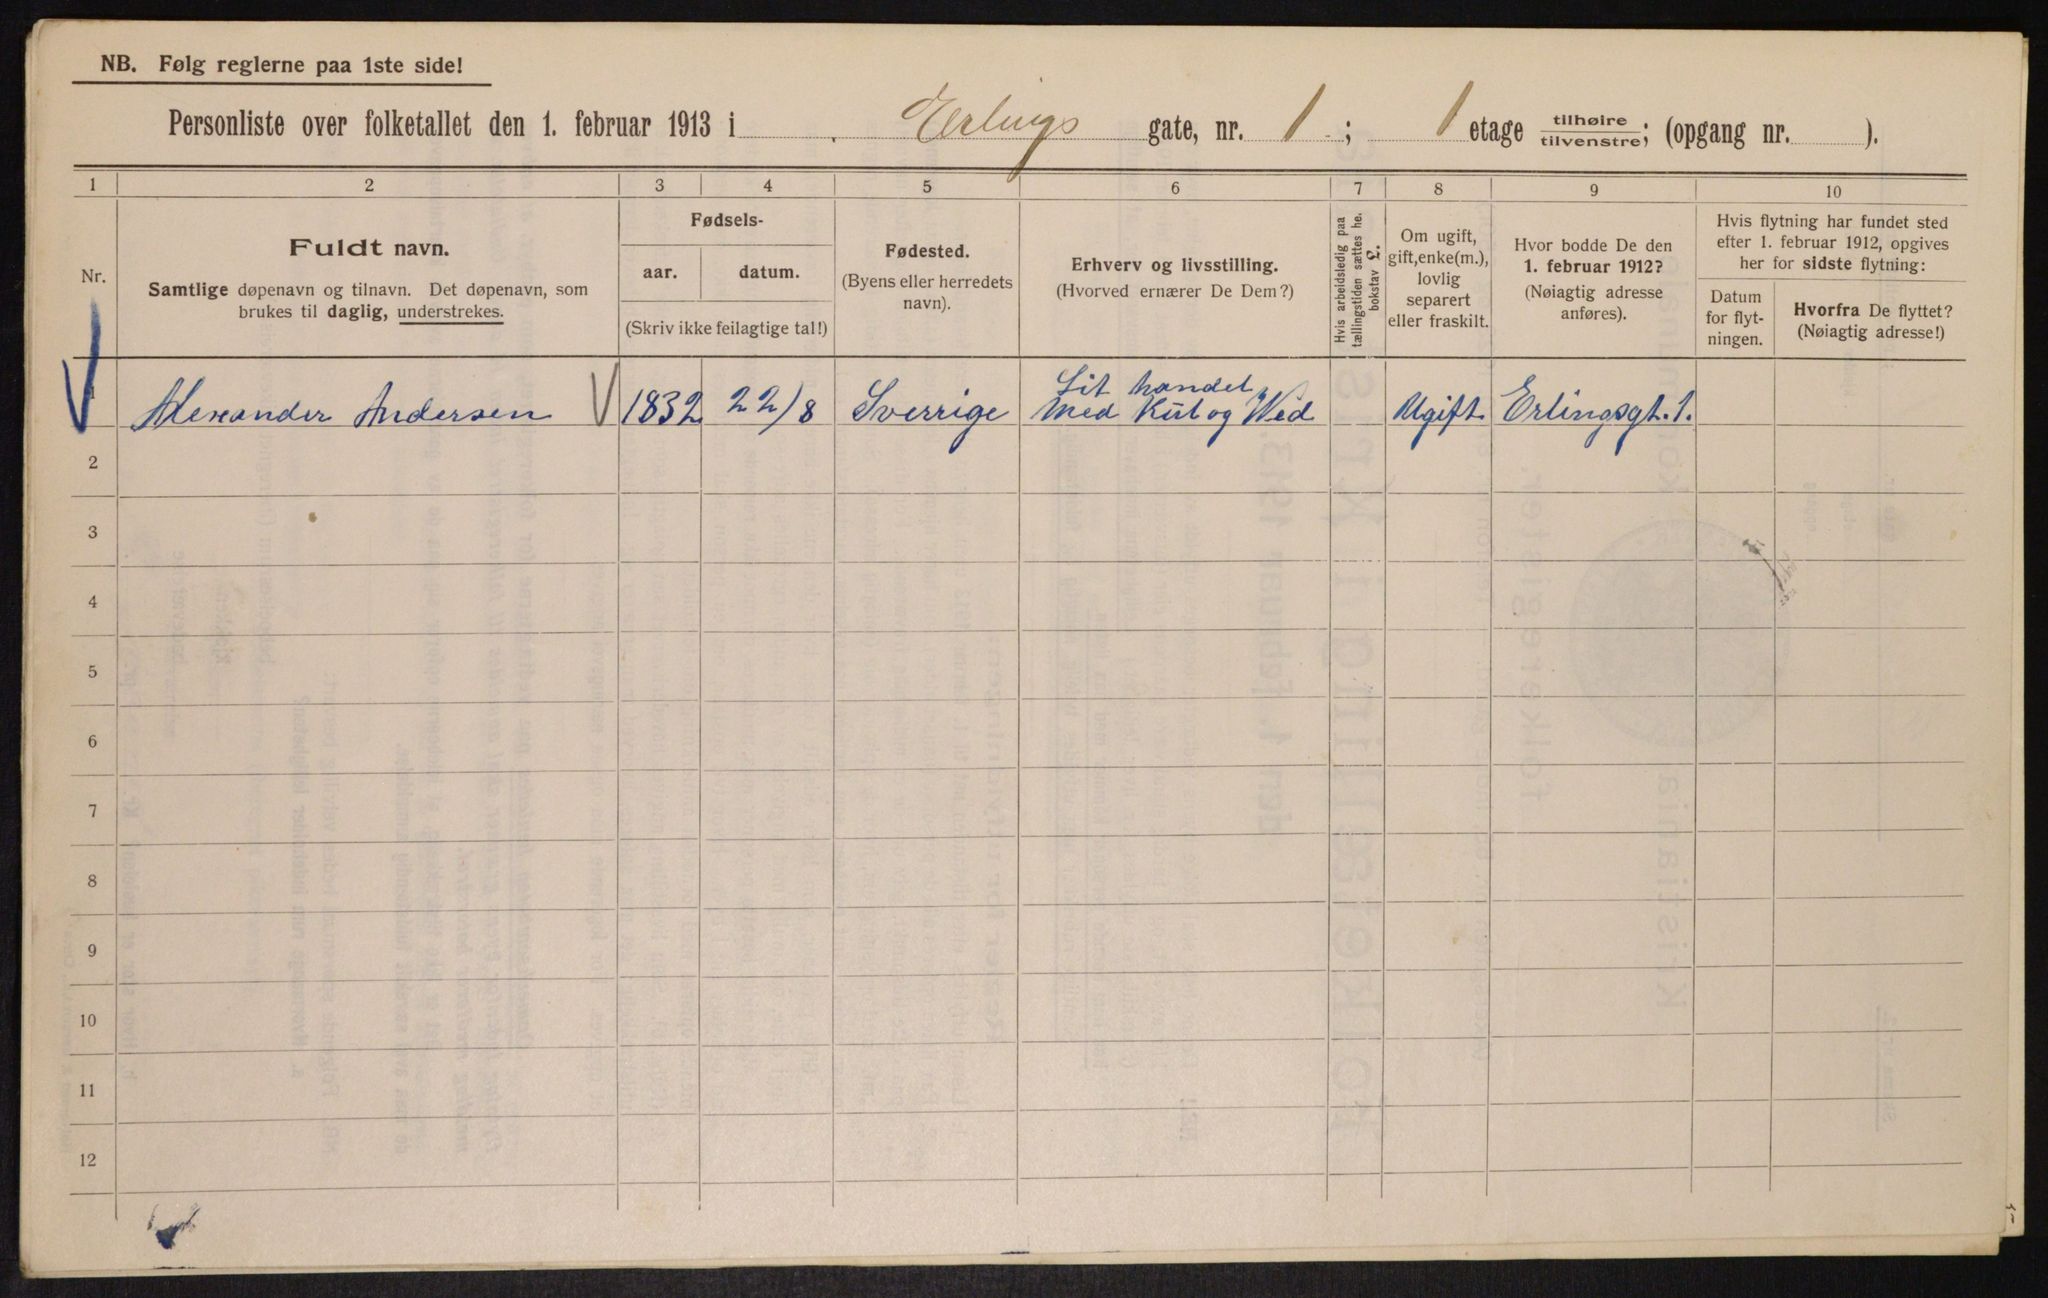 NB. Følg reglerne paa 1ste side!
Personliste over folketallet den 1. februar 1913 i Erlings gate, nr. 1 ; 1 etage tilhøire tilvenstre; (opgang nr. ).
1 2 3 4 5 6 7 8 9 10
Nr.
Fuldt navn.
Samtlige døpenavn og tilnavn. Det døpenavn, som
brukes til daglig, understrekes.
Fødsels-
aar. datum.
(Skriv ikke feilagtige tal!)
Fødested.
(Byens eller herredets
navn).
Erhverv og livsstilling.
(Hvorved ernærer De Dem?)
Hvis arbeidsledig paa
tællingstiden sættes he.
bokstav
Om ugift,
gift, enke(m.),
lovlig
separert
eller fraskilt.
Hvor bodde De den
1. februar 1912?
(Nøiagtig adresse
anføres).
Hvis flytning har fundet sted
efter 1. februar 1912, opgives
her for sidste flytning:
Datum
for flyt-
ningen.
Hvorfra De flyttet?
(Nøiagtig adresse!)
Lit handel
1 Alexander Andersen 1832 22/8 Sverrige med Kul og Wed Ugift Erlingsgt. 1.
2
3
4
5
6
7
8
9
10
11
12